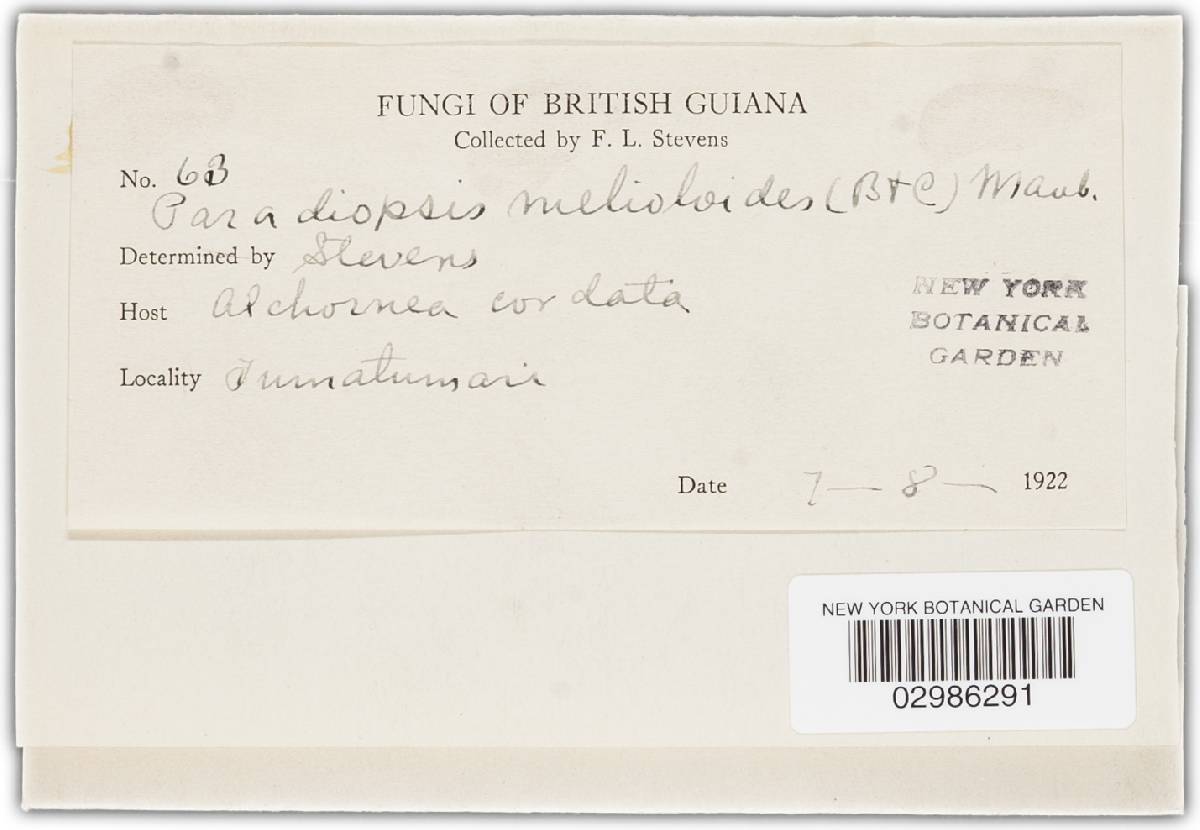 FUNGI OF BRITISH GUIANA
Collected by F. L. Stevens
No. 63
Paradiopsis melioloides (B+C) Maub.
Determined by Stevens
Host Alchornea cordata
Locality Tumatumari
NEW YORK
BOTANICAL
GARDEN
Date 7-8- 1922
NEW YORK BOTANICAL GARDEN
02986291